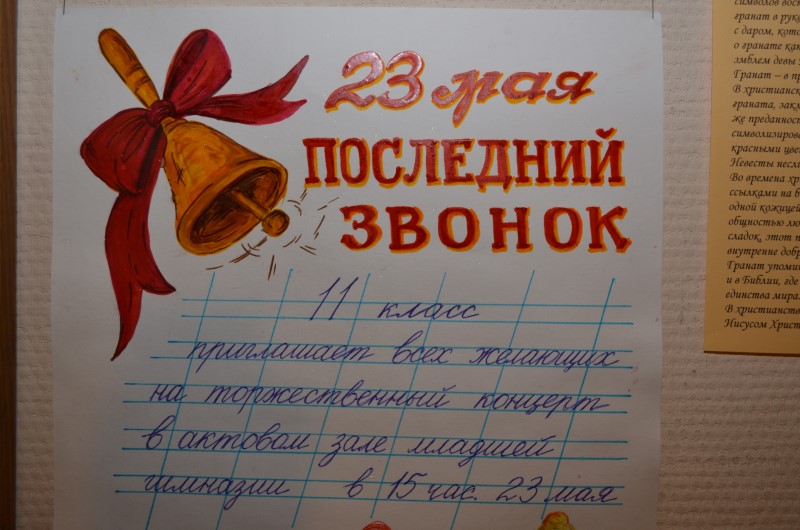 23 мая
ПОСЛЕДНИЙ
ЗВОНОК
11 класс
приглашает всех желающих
на торжественный концерт
в актовом зале младшей
гимназии в 15 час. 23 мая
гранат в рук
с даром, кото
о гранате как
эмблем девы
Гранат – в пр
В христианск
граната, закл
же преданнос
символизирова
красными цве
Невесты несл
Во времена хр
ссылками на в
одной кожицей
общностью лю
сладок, этот п
внутренне добр
Гранат упоми
и в Библии, где
единства мира
В христианств
Иисусом Христ